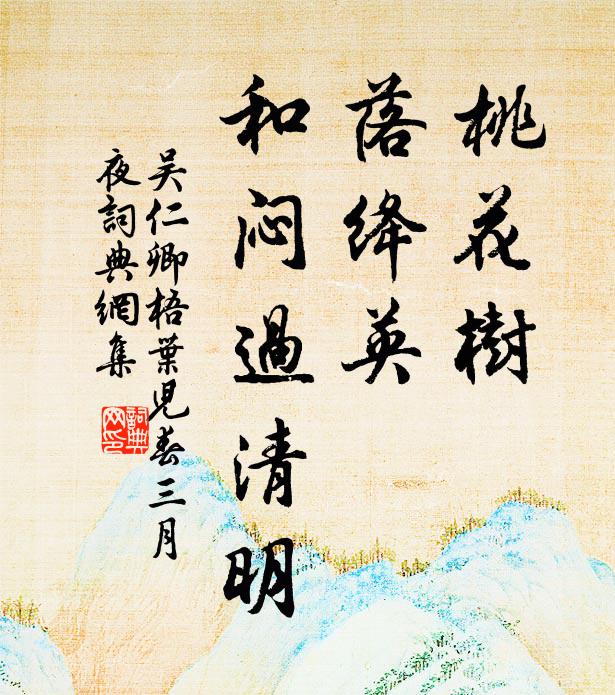 桃花樹
落绛英
和闷過清明
吴仁卿梧葉兒春三月
夜詞典網集
詞典
网印